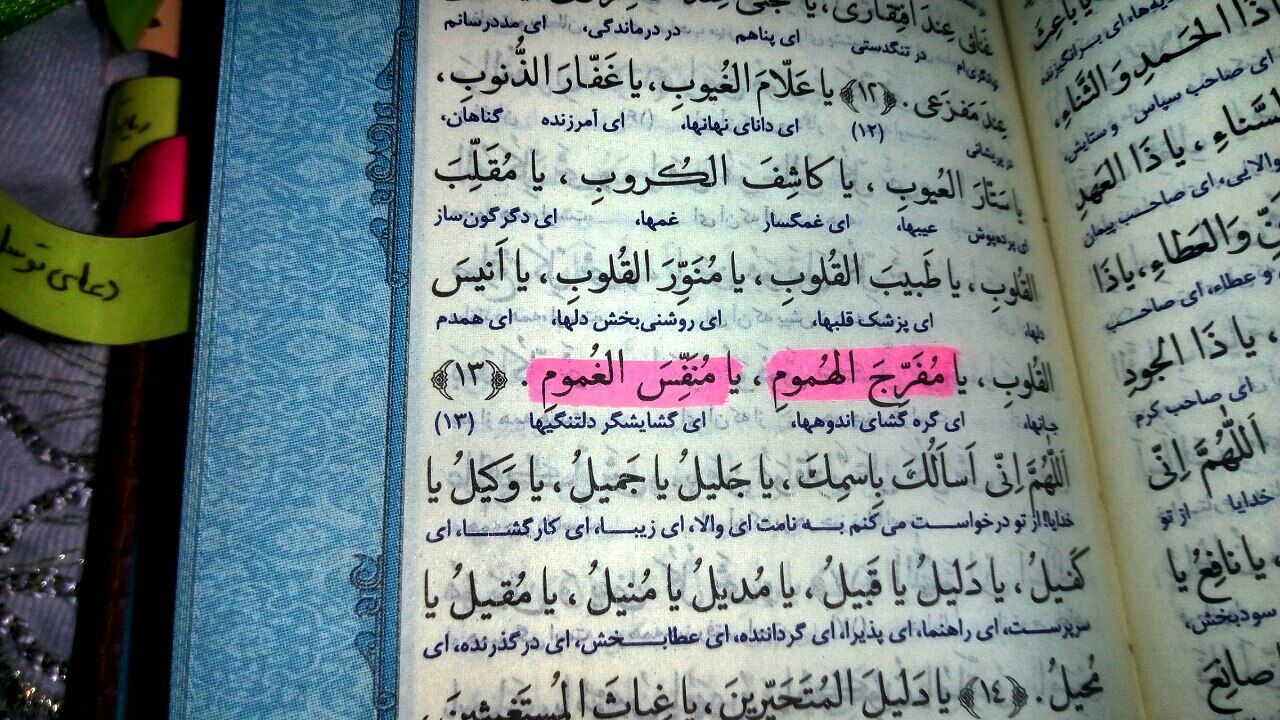 عِندَ افْتِقاری، یا
در تنگدستی ای پناهم در درماندگی، ای مددرسانم
عِندَ مَفزَعی . ﴿١٢﴾ یا عَلّامَ الغُیوبِ، یا غَفّارَ الذُّنوبِ،
در پریشانی (١٢) ای دانای نهانها، ای آمرزنده گناهان،
یا سَتّارَ العُیوبِ ، یا کاشِفَ الکُروبِ ، یا مُقَلِّبَ
ای پرده‌پوش عیبها، ای غمگسار غمها، ای دگرگون‌ساز
القُلوبِ، یا طَبیبَ القُلوبِ، یا مُنَوِّرَ القُلوبِ، یا اَنیسَ
دلها، ای پزشک قلبها، ای روشنی‌بخش دلها، ای همدم
القُلوبِ ، یا مُفَرِّجَ الهُمومِ ، یا مُنَفِّسَ الغُمومِ . ﴿١٣﴾
جانها، ای گره گشای اندوهها، ای گشایشگر دلتنگیها (١٣)
اَللّهُمَّ اِنّی اَساَلُکَ بِاسمِکَ، یا جَلیلُ یا جَمیلُ ، یا وَکیلُ یا
خدایا! از تو درخواست می‌کنم به نامت ای والا، ای زیبا، ای کارگشا، ای
کَفیلُ ، یا دَلیلُ یا قَبیلُ ، یا مُدیلُ یا مُنیلُ ، یا مُقیلُ یا
سرپرست، ای راهنما، ای پذیرا، ای گرداننده، ای عطابخش، ای درگذرنده، ای
مُحیلُ . ﴿١٤﴾ یا دَلیلَ المُتَحَیِّرینَ، یا غِیاثَ المُستَغیثینَ،
ذَا الحَمدِ وَ الثَّناءِ،
ای صاحب سپاس و ستایش،
یا ذَا العَهدِ
ای صاحب پیمان
وَالعَطاءِ، یاذَا
و عطاء، ای صاحب
، یا ذَا الجودِ
ای صاحب کرم
اَللّهُمَّ اِنّی
خدایا از تو
، یا نافِعُ یا
سودبخش،
صانِعَ
دعای توسل